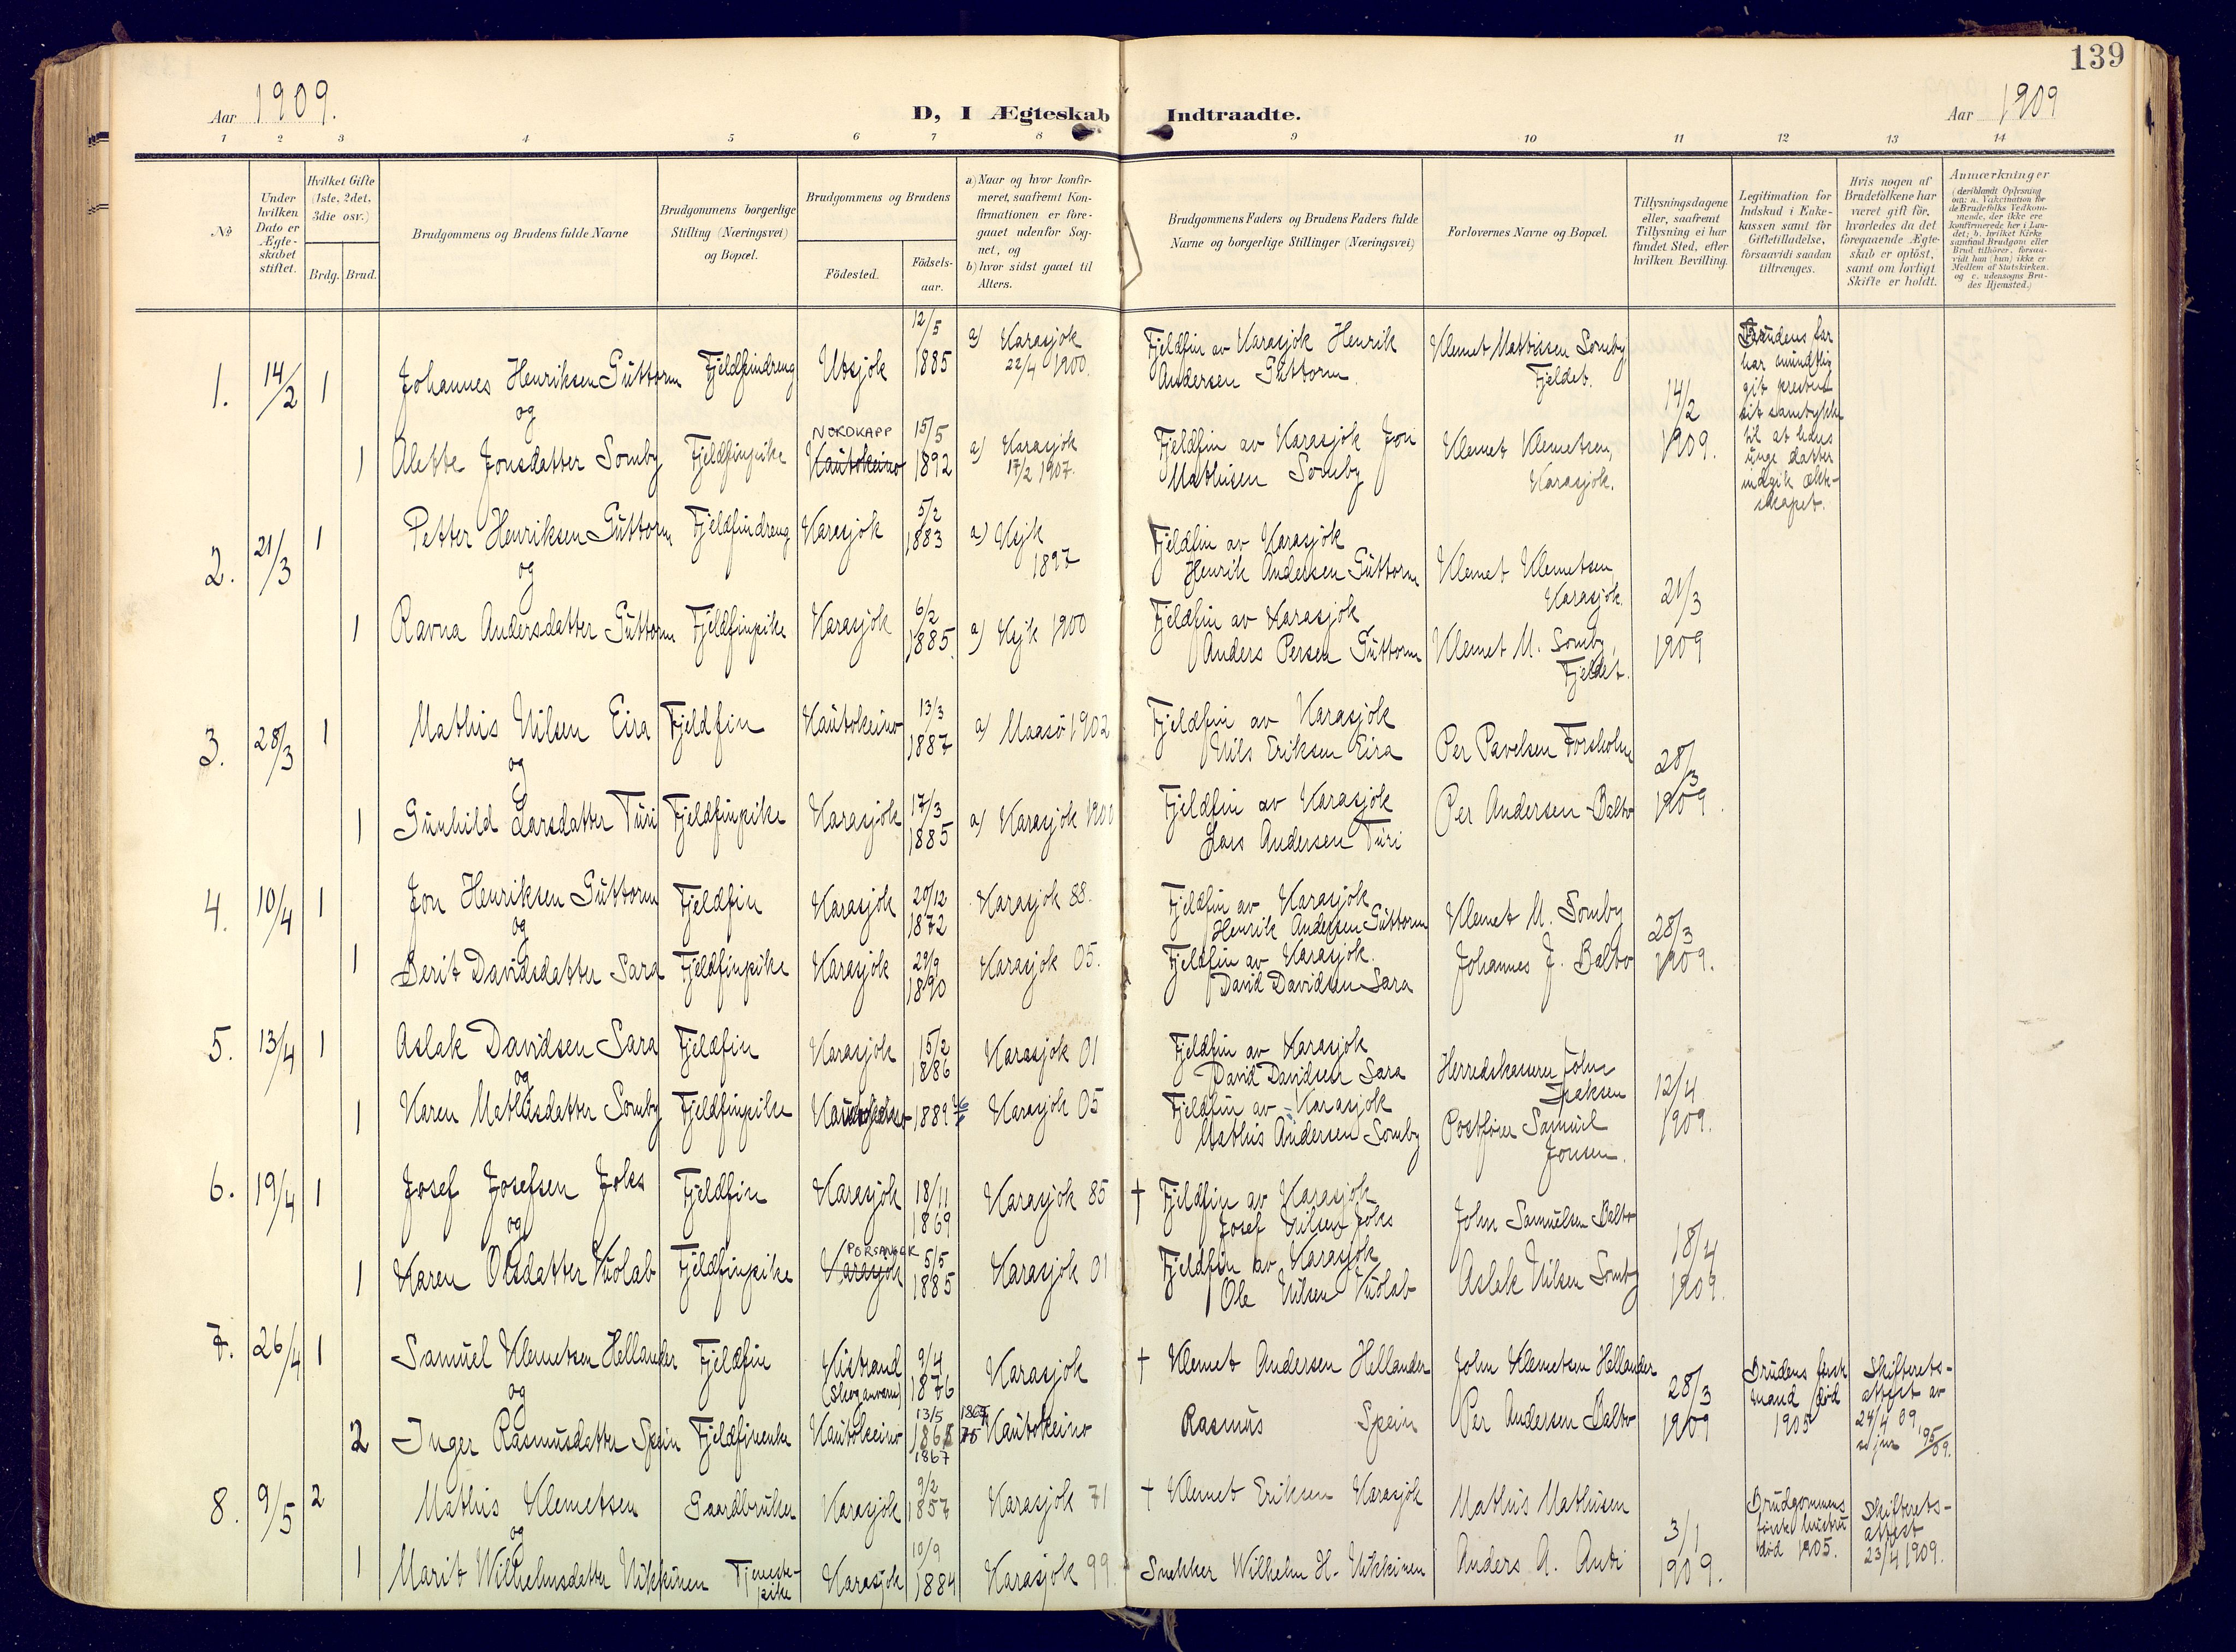 139
Aar 1909.
D, I Ægteskab Indtraadte.
Aar 1909
1 2 3 4 5 6 7 8 9 10 11 12 13 14
No
Under hvilken Dato er Ægteskabet stiftet.
Hvilket Gifte (1ste, 2det, 3die osv.)
Brdg. Brud.
Brudgommens og Brudens fulde Navne
Brudgommens borgerlige Stilling (Næringsvei) og Bopæl.
Brudgommens og Brudens
Fødested.
Fødsels-aar.
a) Naar og hvor konfirmeret, saafremt Konfirmationen er foregaaet udenfor Sognet, og
b) hvor sidst gaaet til Alters.
Brudgommens Faders og Brudens Faders fulde Navne og borgerlige Stillinger (Næringsvei)
Forlovernes Navne og Bopæl.
Tillysningsdagene eller, saafremt Tillysning ei har fundet Sted, efter hvilken Bevilling.
Legitimation for Indskud i Enkekassen samt for Giftetilladelse, forsaavidt saadan tiltrænges.
Hvis nogen af Brudefolkene har været gift før, hvorledes da det foregaaende Ægteskab er opløst, samt om lovligt Skifte er holdt.
Anmærkninger
(deriblandt Oplysning om: a. Vakcination for de Brudefolks Vedkommende, der ikke ere konfirmerede her i Landet; b. hvilket Kirkesamfund Brudgom eller Brud tilhører, forsaavidt han (hun) ikke er Medlem af Statskirken, og c. udensogns Brudes Hjemsted.)
1. 14/2 1 Johannes Henriksen Guttorm Fjeldfindreng Utsjok 12/5 1885 a) Karasjok 22/4 1900. Fjeldfin av Karasjok Henrik Andersen Guttorm. Klemet Mathissen Somby, Fjeldet.
og
14/2 1909.
Brudens far har mundtlig git presten sit samtykke til at hans unge datter indgik ekteskapet.
1 Alette Jonsdatter Somby Fjeldfinpike NORDKAPP Kautokeino 15/5 1892 a) Karasjok 17/2 1907. Fjeldfin av Karasjok Jon Mathisen Somby Klemet Klemetsen, Karasjok.
2. 21/3 1 Petter Henriksen Guttorm Fjeldfindreng Karasjok 5/2 1883 a) Ksjk 1897 Fjeldfin av Karasjok Henrik Andersen Guttorm Klemet Klemetsen, Karasjok.
og
21/3 1909
1 Ravna Andersdatter Guttorm Fjeldfinpike Karasjok 6/2 1885. a) Ksjk 1900 Fjeldfin av Karasjok, Anders Persen Guttorm Klemet M. Somby, Fjeldet.
3. 28/3 1 Mathis Nilsen Eira Fjeldfin Kautokeino 13/3 1887 a) Maasö 1902 Fjeldfin av Karasjok Nils Eriksen Eira Per Pavelsen Forsholm
og
28/3 1909.
1 Gunhild Larsdatter Turi Fjeldfinpike Karasjok 17/3 1885 a) Karasjok 1900 Fjeldfin av Karasjok Lars Andersen Turi Per Andersen Balto
4. 10/4 1 Jon Henriksen Guttorm Fjeldfin Karasjok 20/12 1872 Karasjok 88. Fjeldfin av Karasjok Henrik Andersen Guttorm Klemet M. Somby
og
28/3 1909.
1 Berit Davidsdatter Sara Fjeldfinpike Karasjok 29/9 1890 Karasjok 05. Fjeldfin av Karasjok. David Davidsen Sara Johannes J. Balto
5. 13/4 1 Aslak Davidsen Sara Fjeldfin Karasjok 15/2 1886 Karasjok 01 Fjeldfin av Karasjok David Davidsen Sara Herredskasserer John Isaksen
og
12/4 1909.
1 Karen Mathisdatter Somby Fjeldfinpike 1889 Karasjok 05 Fjeldfin av Karasjok Mathis Andersen Somby Postfører Samuel Jonsen.
6. 19/4 1 Josef Josefsen Joks Fjeldfin Karasjok 18/11 1869 Karasjok 85 † Fjeldfin av Karasjok Josef Nilsen Joks John Samuelsen Balto
og
18/4 1909.
1 Karen Olsdatter Vuolab Fjeldfinpike PORSANGER Karasjok 5/5 1885 Karasjok 01 Fjeldfin av Karasjok Ole Nilsen Vuolab Aslak Nilsen Somby
7. 26/4 1 Samuel Klemetsen Hellander Fjeldfin Kistrand (Skoganvarre) 9/4 1876 Karasjok † Klemet Andersen Hellander John Klemetsen Hellander
og
28/3 1909
Brudens første mand død 1905
Skifterets-attest av 24/4 09
2 Inger Rasmusdatter Spein Fjeldfinenke Kautokeino 13/5 1867 Kautokeino Rasmus Spein Per Andersen Balto
8. 9/5 2 Mathis Klemetsen Gaardbruker Karasjok 9/2 1857 Karasjok 71 † Klemet Eriksen Karasjok Mathis Mathisen
og
3/1 1909.
Brudgommens første hustru død 1905.
Skifterets-attest 23/4 1909.
1 Marit Wilhelmsdatter Nikkinen Tjeneste-pike Karasjok 10/9 1884 Karasjok 99. Snekker Wilhelm H. Nikkinen Anders A. Anti